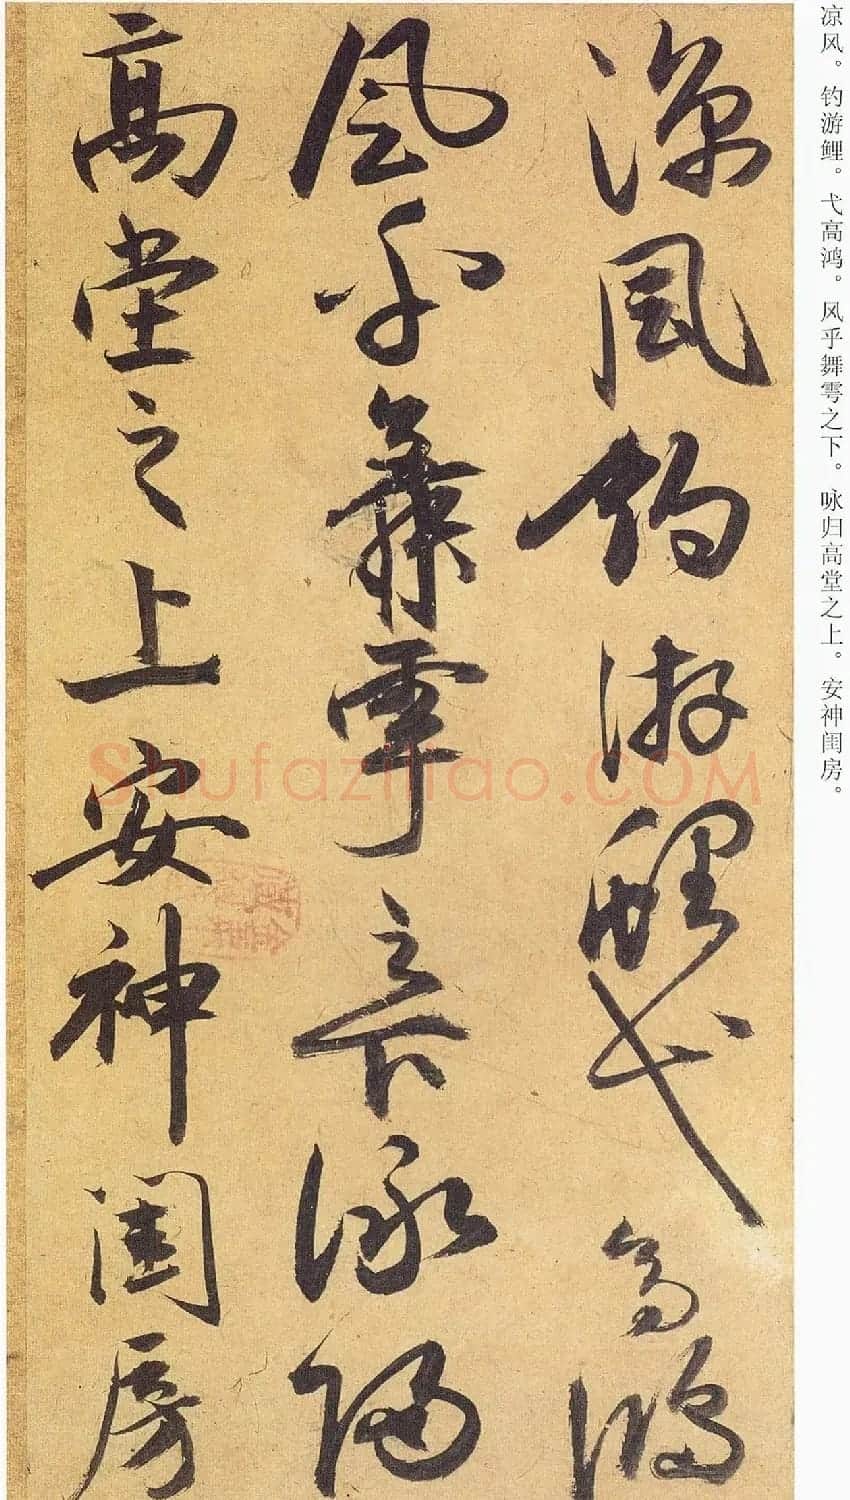 凉风。钓游鲤。弋高鸿。风乎舞雩之下。咏归高堂之上。安神闺房。
涼風釣游鯉弋高鴻
風乎舞雩之下詠歸
高堂之上安神閨房
Shufaziliao.COM